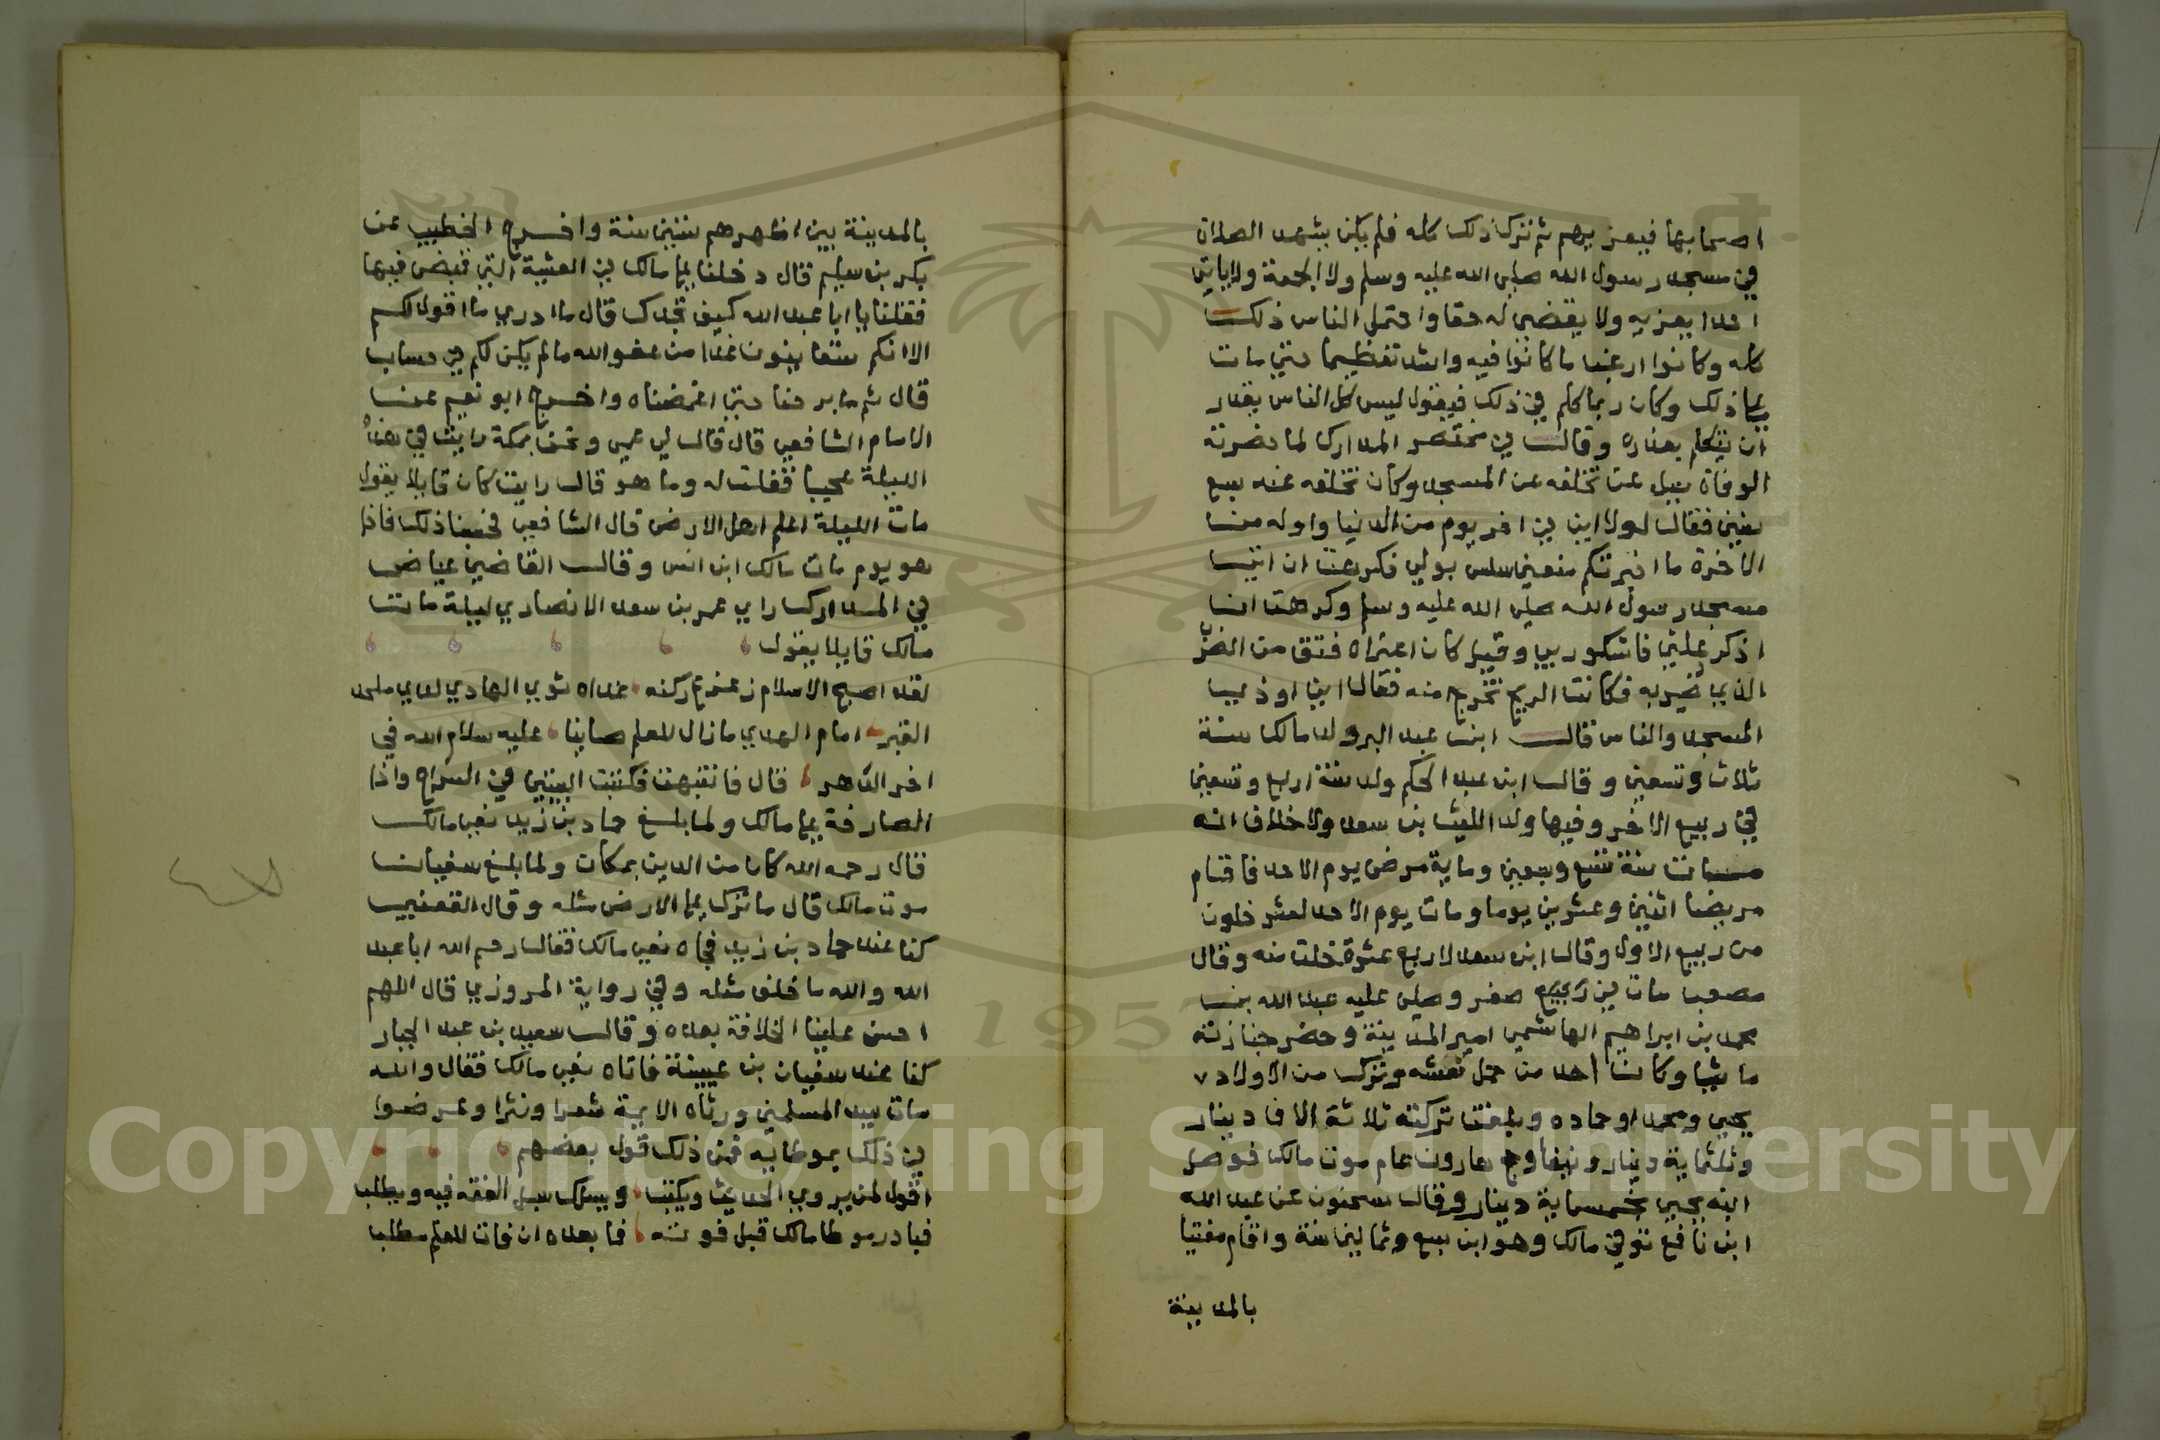 اصحابها فيعزيهم ثم ترك ذلك كله فلم يكن يشهد الصلاة
في مسجد رسول الله صلى الله عليه وسلم ولا الجمعة ولا ياتي
احدا يعزيه ولا يقضي له حقا واحتمل الناس ذلك
كله وكانوا ارغب ما كانوا فيه واشد تعظيما حتى مات
على ذلك وكان ربما كلم في ذلك فيقول ليس كل الناس يقدر
ان يتكلم بعذره وقال في مختصر المدارك لما حضرته
الوفاة سيل عن تخلفه عن المسجد وكان تخلفه عنه سبع
سنين فقال لولا اني في اخر يوم من الدنيا واوله من
الاخرة ما اخبرتكم منعني سلس بولي فكرهت ان اتي
مسجد رسول الله صلى الله عليه وسلم وكرهت ان
اذكر علتي فاشكو ربي وقيل كان اعتراه فتق من الضر
الذي ضربه فكانت الريح تخرج منه فقال اني اوذي
المسجد والناس قال ابن عبد البر ولد مالك سنة
ثلاث وتسعين وقال ابن عبد الحكم ولد سنة اربع وتسعين
في ربيع الاخر وفيها ولد الليث بن سعد ولا خلاف انه
مات سنة تسع وسبعين وماية مرض يوم الاحد فاقام
مريضا اثنين وعشرين يوما ومات يوم الاحد لعشر خلون
من ربيع الاول وقال ابن سعد لاربع عشرة خلت منه وقال
مصعب مات في ربيع صفر وصلى عليه عبد الله بن
محمد بن ابراهيم الهاشمي امير المدينة وحضر جنازته
ماشيا وكان احد من حمل نعشه وترك من الاولاد
يحيى ومحمدا وحماده وبلغت تركته ثلاثة الاف دينار
وثلثماية دينار ونيفا وحج هارون عام موت مالك فوصل
ابنه يحيى بخمسماية دينار وقال سحنون عن عبد الله
ابن نافع توفي مالك وهو ابن سبع وثمانين سنة واقام مفتيا
بالمدينة
بالمدينة بين اظهرهم ستين سنة واخرج الخطيب عن
بكر بن سليم قال دخلنا على مالك في العشية التي قبض فيها
فقلنا يا ابا عبد الله كيف تجدك قال ما ادري ما اقول لكم
الا انكم ستعاينون غدا من عفو الله ما لم يكن لكم في حساب
قال ثم ما برحنا حتى اغمضناه واخرج ابو نعيم عن
الامام الشافعي قال قالت لي عمتي ونحن بمكة رايت في هذه
الليلة عجبا فقلت له وما هو قال رايت كان قايلا يقول
مات الليلة اعلم اهل الارض قال الشافعي فحسبنا ذلك فاذا
هو يوم مات مالك ابن انس وقال القاضي عياض
في المدارك راي عمر بن سعد الانصاري ليلة مات
مالك قايلا يقول
لقد اصبح الاسلام زعزع ركنه غداة ثوي الهادي لدي ملحد
القبر امام الهدي ما زال للعلم صاينا عليه سلام الله في
اخر الدهر قال فانتبهت فكتبت البيتين في السراج واذا
الصارخة على مالك ولما بلغ حماد بن زيد نعي مالك
قال رحمه الله كان من الدين بمكان ولما بلغ سفيان
موت مالك قال ما ترك على الارض مثله وقال القعنبي
كنا عند حماد بن زيد فجاه نعي مالك فقال رحم الله ابا عبد
الله والله ما خلف مثله وفي رواية المروزي قال اللهم
احسن علينا الخلافة بعده وقال سعيد بن عبد الجبار
كنا عند سفيان بن عيينة فاتاه نعي مالك فقال والله
مات سيد المسلمين ورثاه الايمة شعرا ونثرا وعرضوا
في ذلك بموطايه فمن ذلك قول بعضهم
اقول لمن يروي الحديث ويكتب ويسلك سبل الفقه فيه ويطلب
فبادر موطا مالك قبل فوته فما بعده ان فات للعلم مطلب
Copyright © King Saud University
1957